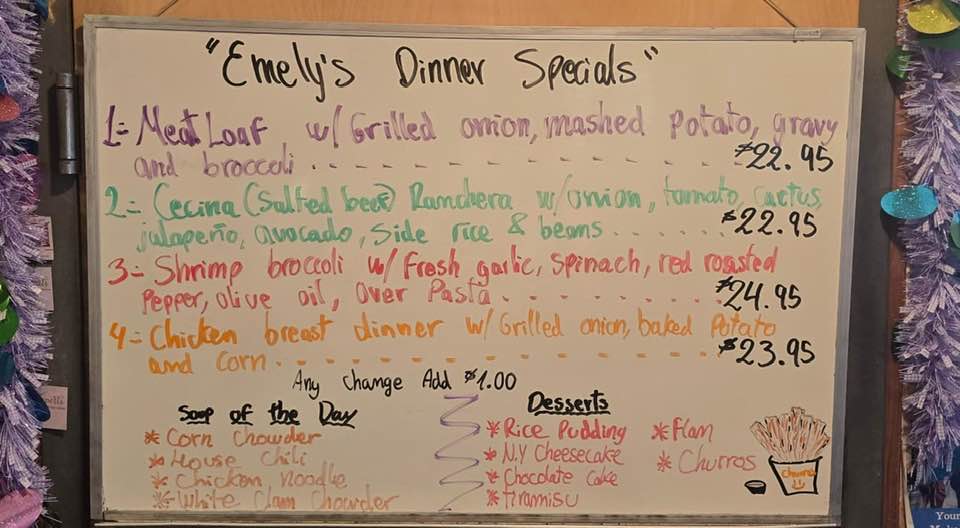 "Emely's Dinner Specials"
1= Meat Loaf w/ Grilled onion, mashed Potato, gravy
and broccoli . . . . . . . . . . . . $22.95
2= Cecina (Salted beef) Ranchera w/ onion, tomato, cactus,
jalapeño, avocado, side rice & beans . . . . . . $22.95
3= Shrimp broccoli w/ Fresh garlic, spinach, red roasted
Pepper, olive oil, Over Pasta . . . . . . . . $24.95
4= Chicken breast dinner w/ Grilled onion, baked Potato
and corn . . . . . . . . . . . . . . . $23.95
Any change Add $1.00
Soup of the Day
* Corn Chowder
* House Chili
* Chicken Noodle
* White Clam Chowder
Desserts
* Rice Pudding
* N.Y Cheesecake
* Chocolate Cake
* Tiramisu
* Flan
* Churros
churros
Your